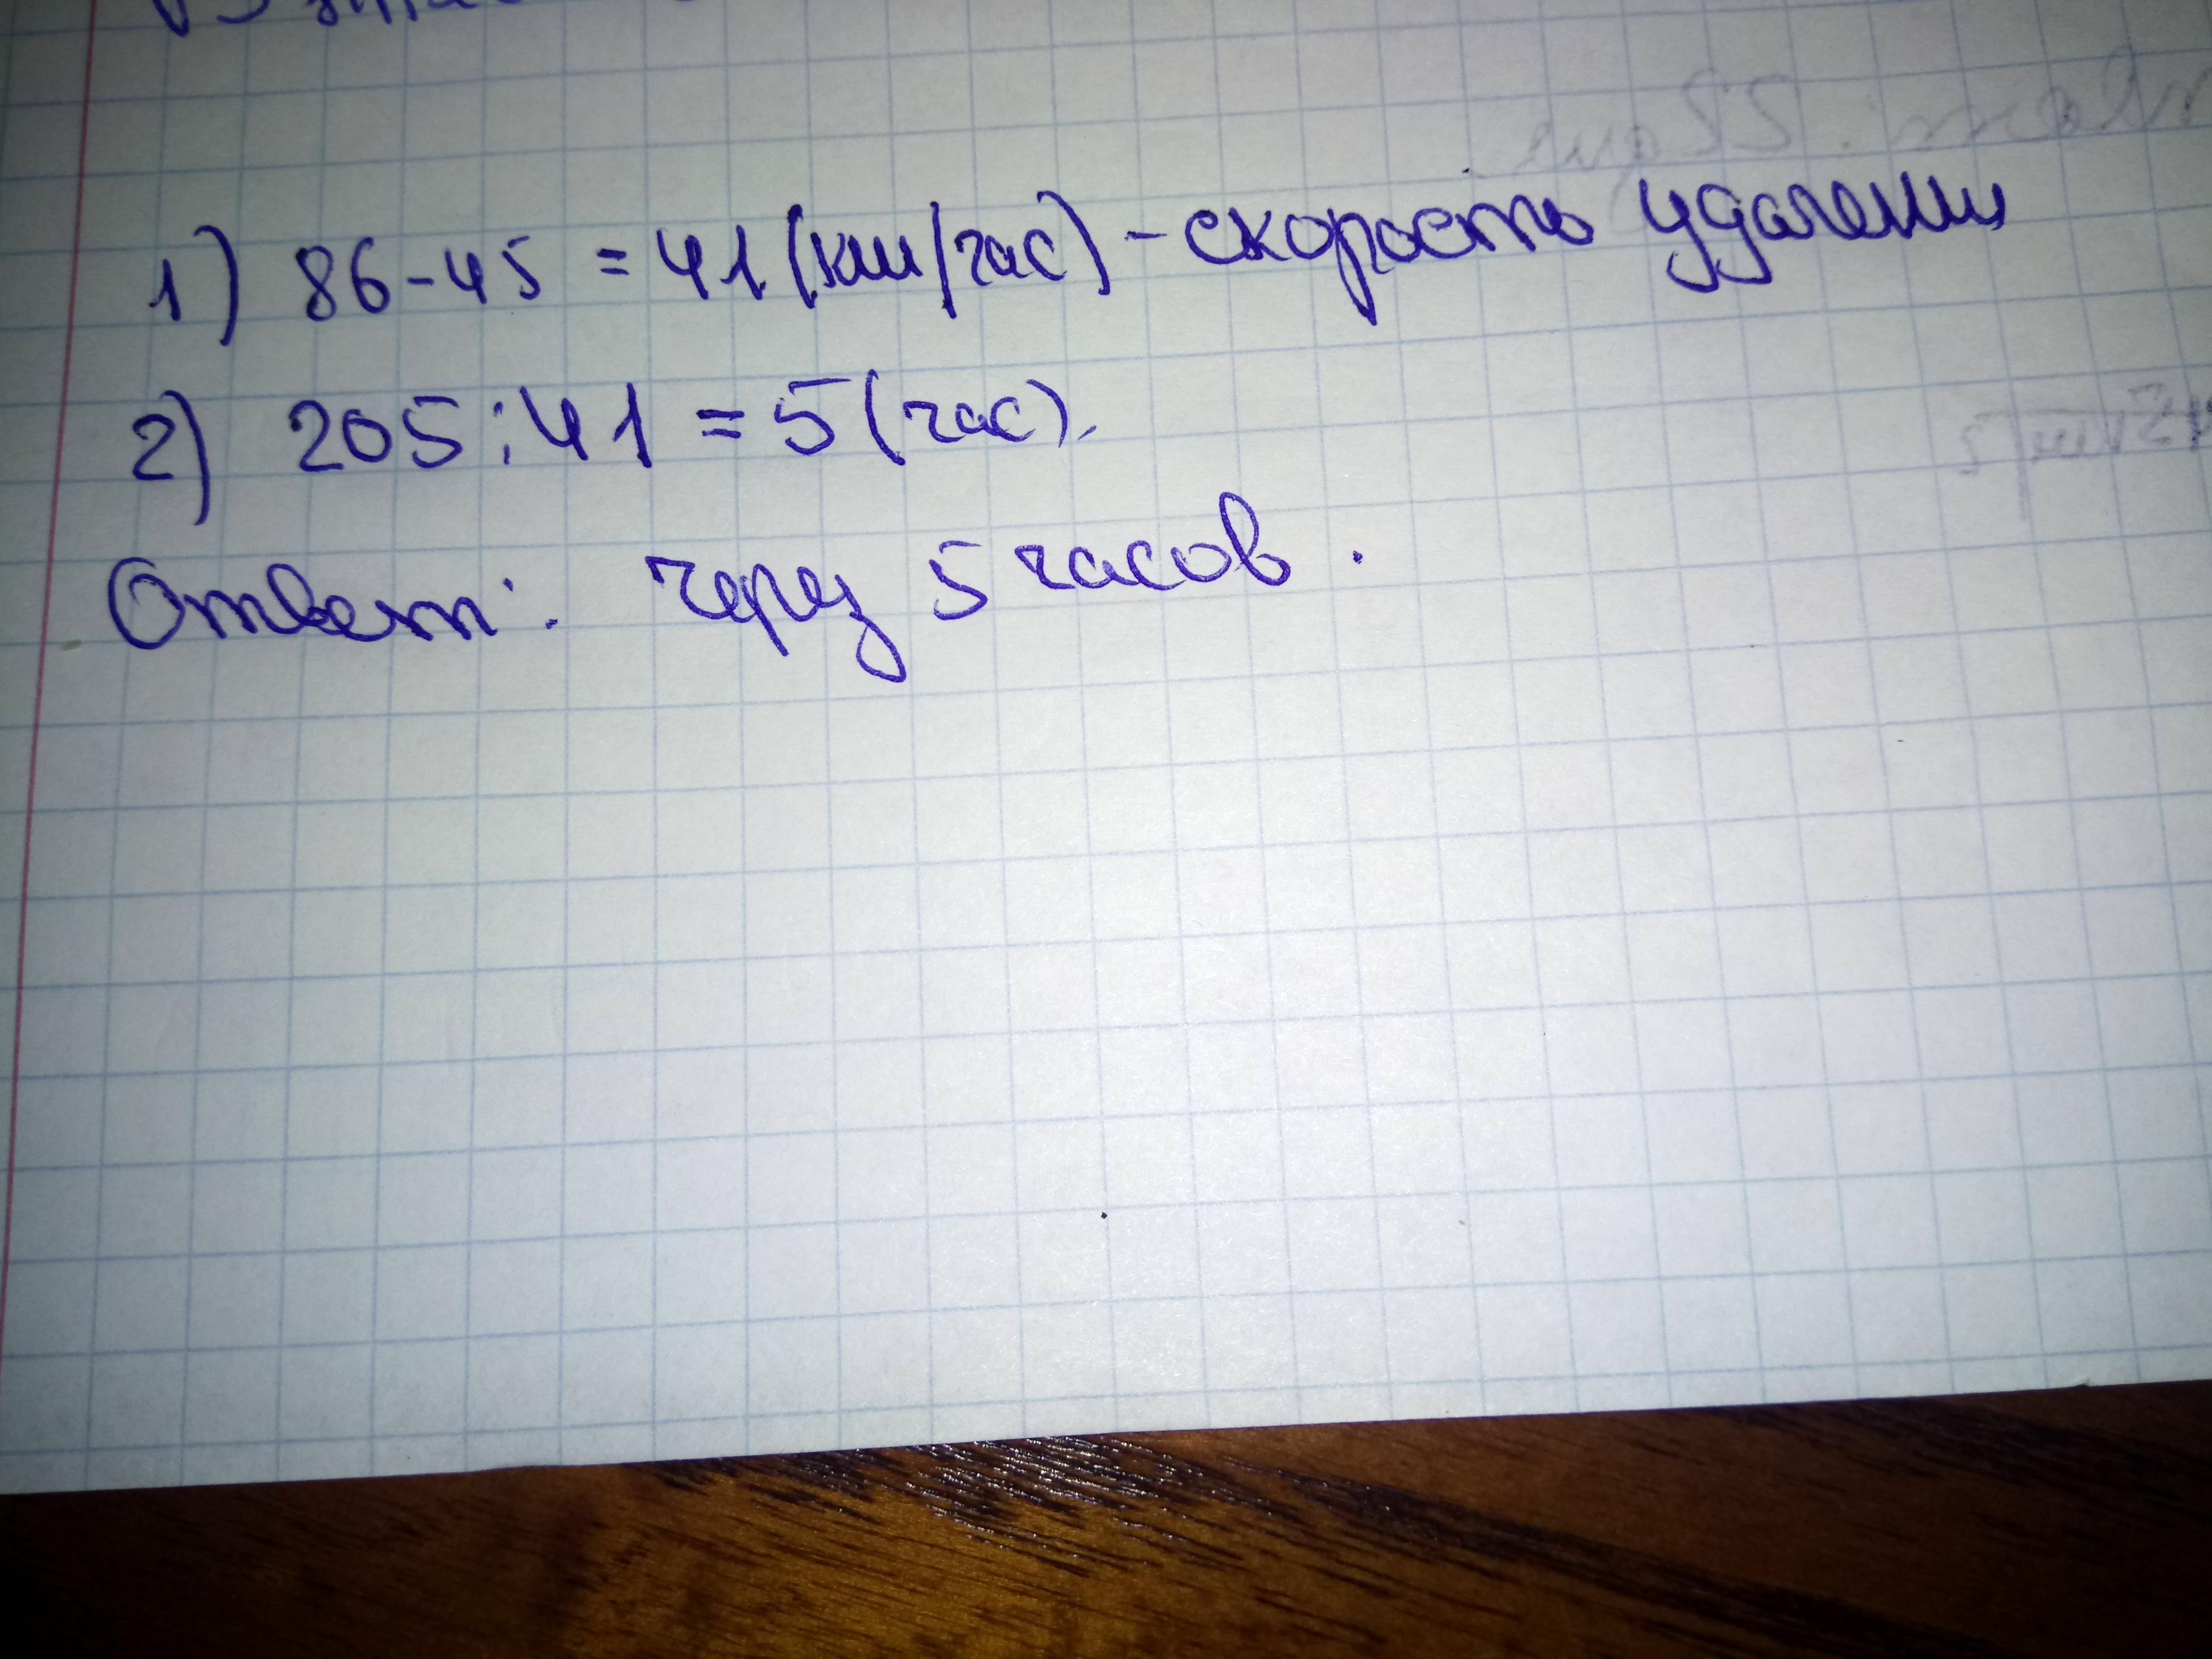 1) 86-45 = 41 (км/час) - скорость удаления
2) 205:41 = 5 (час).
Ответ: через 5 часов.